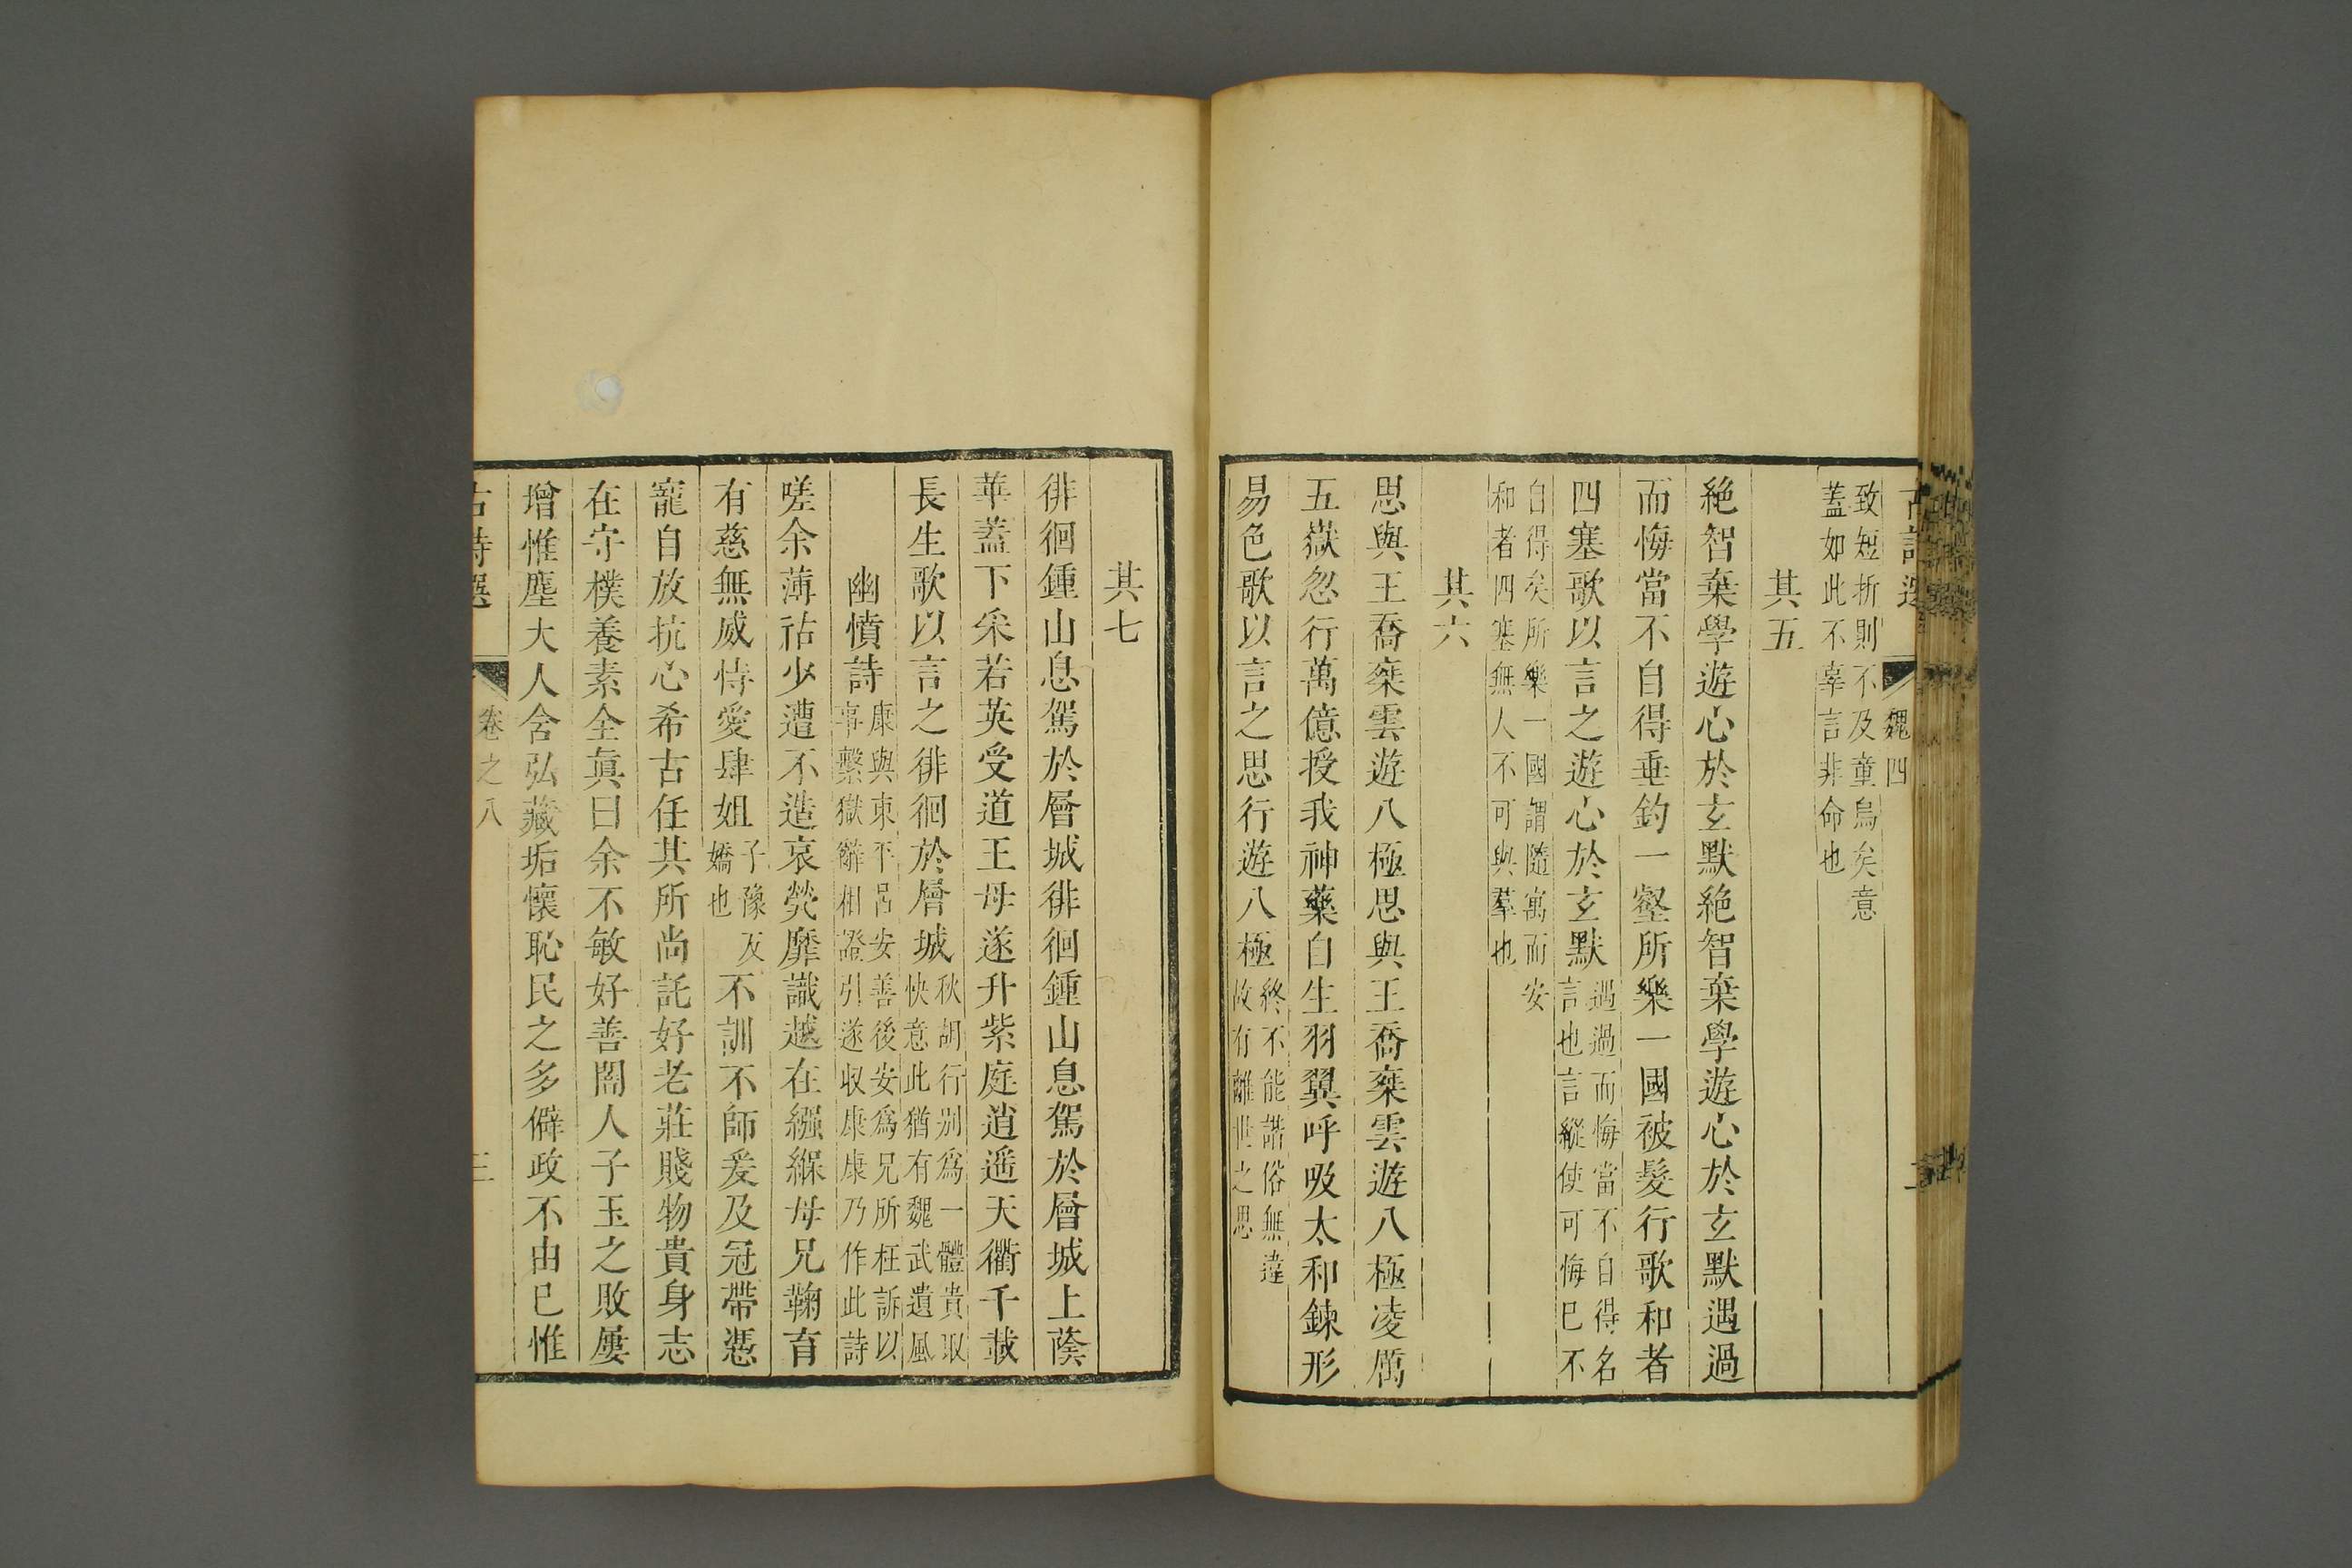 魏四
致短折則不及童烏矣意
蓋如此不幸言非命也
其五
絶智棄學遊心於玄默絶智棄學遊心於玄默遇過
而悔當不自得垂釣一壑所樂一國被髮行歌和者
四塞歌以言之遊心於玄默
遇過而悔當不自得名
言也言縱使可悔已不
自得矣所樂一國謂隨寓而安
和者四塞無人不可與羣也
其六
思與王喬椉雲遊八極思與王喬椉雲遊八極凌厲
五嶽忽行萬億授我神藥自生羽翼呼吸太和鍊形
易色歌以言之思行遊八極
終不能諧俗無違
故有離世之思
其七
徘徊鍾山息駕於層城徘徊鍾山息駕於層城上蔭
華蓋下采若英受道王母遂升紫庭逍遥天衢千載
長生歌以言之徘徊於層城
秋胡行别爲一體貴取
快意此猶有魏武遺風
幽憤詩
康與東平呂安善後安爲兄所枉訴以
事繫獄辭相證引遂収康康乃作此詩
嗟余薄祜少遭不造哀煢靡識越在繈緥母兄鞠育
有慈無威恃愛肆姐
子豫反
嬌也
不訓不師爰及冠帶憑
寵自放抗心希古任其所尚託好老莊賤物貴身志
在守樸養素全眞曰余不敏好善闇人子玉之敗屢
增惟塵大人含弘藏垢懷恥民之多僻政不由已惟
古詩選
卷之八
三